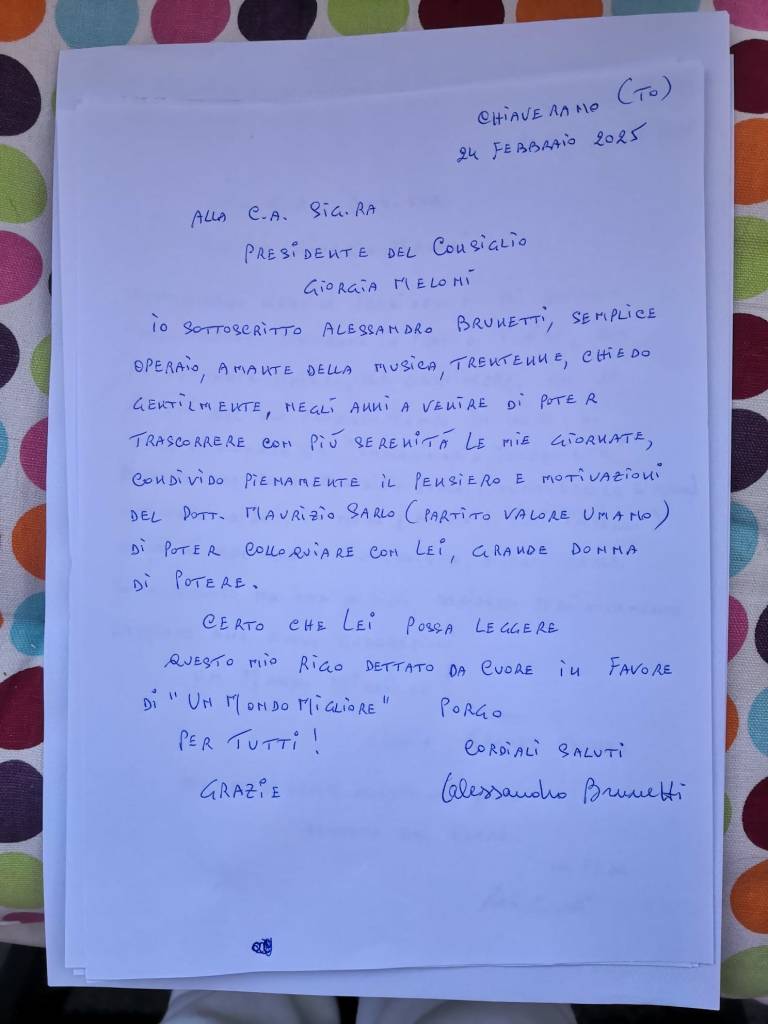 CHIAVERANO (TO)
24 FEBBRAIO 2025
ALLA C.A. SIG.RA
PRESIDENTE DEL CONSIGLIO
GIORGIA MELONI
IO SOTTOSCRITTO ALESSANDRO BRUNETTI, SEMPLICE
OPERAIO, AMANTE DELLA MUSICA, TRENTENNE, CHIEDO
GENTILMENTE, NEGLI ANNI A VENIRE DI POTER
TRASCORRERE CON PIÚ SERENITÁ LE MIE GIORNATE,
CONDIVIDO PIENAMENTE IL PENSIERO E MOTIVAZIONI
DEL DOTT. MAURIZIO SARLO (PARTITO VALORE UMANO)
DI POTER COLLOQUIARE CON LEI, GRANDE DONNA
DI POTERE.
CERTO CHE LEI POSSA LEGGERE
QUESTO MIO RIGO DETTATO DA CUORE IN FAVORE
DI "UN MONDO MIGLIORE" PORGO
PER TUTTI! CORDIALI SALUTI
GRAZIE Alessandro Brunetti